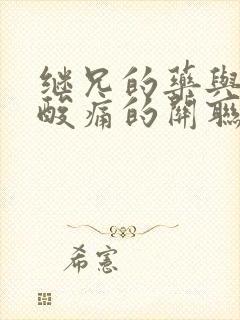 继兄的藥與
酸痛的關聯
希憲